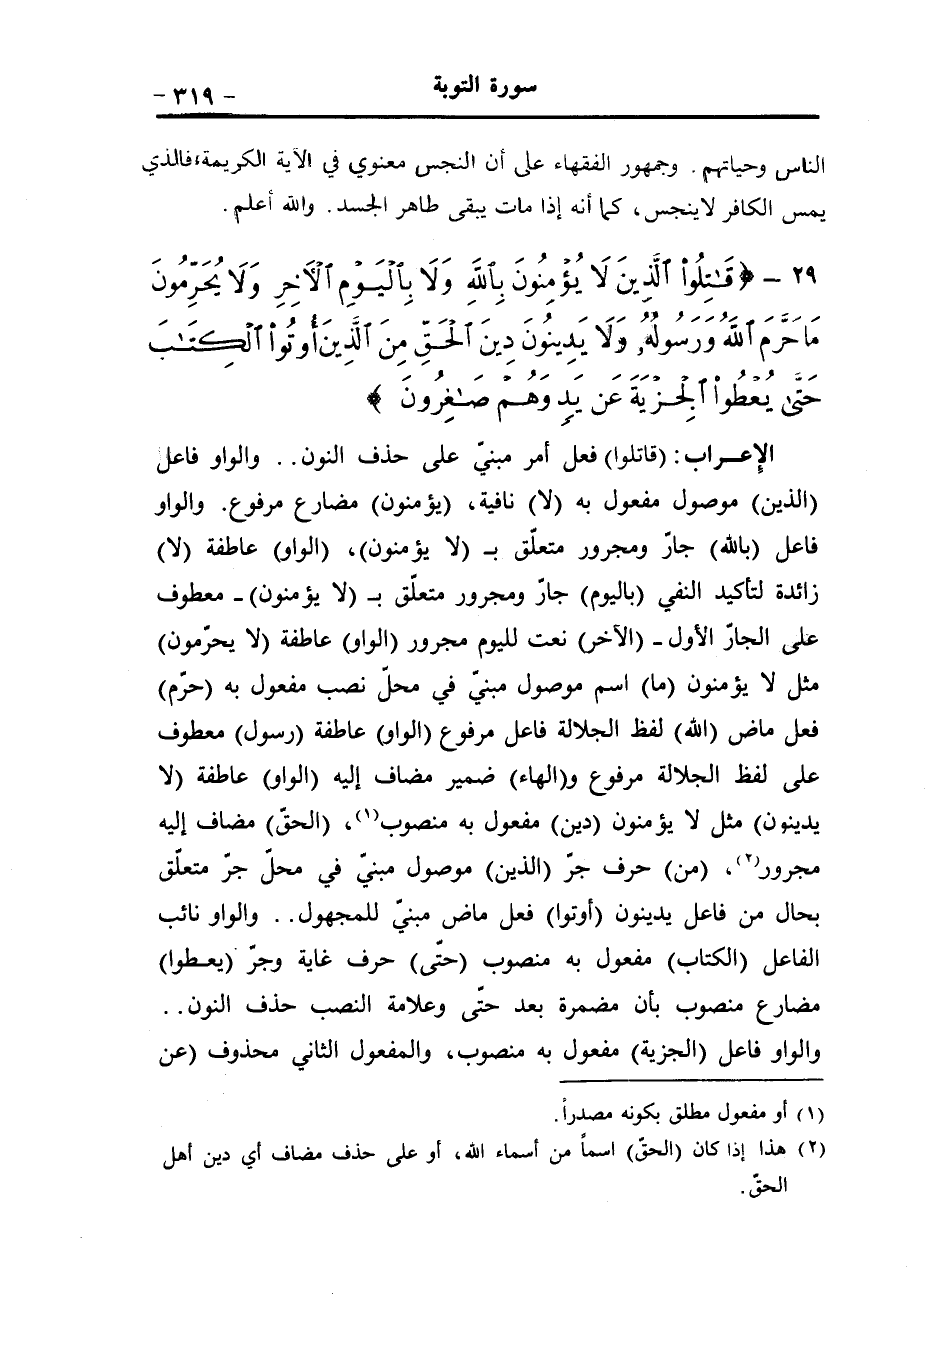 سورة التوبة
- ٣١٩ -
الناس وحياتهم . وجمهور الفقهاء على أن النجس معنوي في الآية الكريمة، فالذي
يمس الكافر لاينجس، كما أنه إذا مات يبقى طاهر الجسد . والله أعلم .
٢٩ - ﴿ قَـٰتِلُوا۟ ٱلَّذِينَ لَا يُؤْمِنُونَ بِٱللَّهِ وَلَا بِٱلْيَوْمِ ٱلْـَٔاخِرِ وَلَا يُحَرِّمُونَ
مَا حَرَّمَ ٱللَّهُ وَرَسُولُهُۥ وَلَا يَدِينُونَ دِينَ ٱلْحَقِّ مِنَ ٱلَّذِينَ أُوتُوا۟ ٱلْكِتَـٰبَ
حَتَّىٰ يُعْطُوا۟ ٱلْجِزْيَةَ عَن يَدٍ وَهُمْ صَـٰغِرُونَ ﴾
الإعـراب : (قاتلوا) فعل أمر مبنيّ على حذف النون . . والواو فاعل
(الذين) موصول مفعول به (لا) نافية، (يؤمنون) مضارع مرفوع. والواو
فاعل (بالله) جارّ ومجرور متعلّق بـ (لا يؤمنون)، (الواو) عاطفة (لا)
زائدة لتأكيد النفي (باليوم) جارّ ومجرور متعلّق بـ (لا يؤمنون) - معطوف
على الجارّ الأول - (الآخر) نعت لليوم مجرور (الواو) عاطفة (لا يحرّمون)
مثل لا يؤمنون (ما) اسم موصول مبنيّ في محلّ نصب مفعول به (حرّم)
فعل ماض (الله) لفظ الجلالة فاعل مرفوع (الواو) عاطفة (رسول) معطوف
على لفظ الجلالة مرفوع و(الهاء) ضمير مضاف إليه (الواو) عاطفة (لا
يدينون) مثل لا يؤمنون (دين) مفعول به منصوب(١)، (الحقّ) مضاف إليه
مجرور(٢)، (من) حرف جرّ (الذين) موصول مبنيّ في محلّ جرّ متعلّق
بحال من فاعل يدينون (أوتوا) فعل ماض مبنيّ للمجهول . . والواو نائب
الفاعل (الكتاب) مفعول به منصوب (حتّى) حرف غاية وجرّ (يعـطوا)
مضارع منصوب بأن مضمرة بعد حتّى وعلامة النصب حذف النون . .
والواو فاعل (الجزية) مفعول به منصوب، والمفعول الثاني محذوف (عن
(١) أو مفعول مطلق بكونه مصدراً.
(٢) هذا إذا كان (الحقّ) اسماً من أسماء الله، أو على حذف مضاف أي دين أهل
الحقّ .